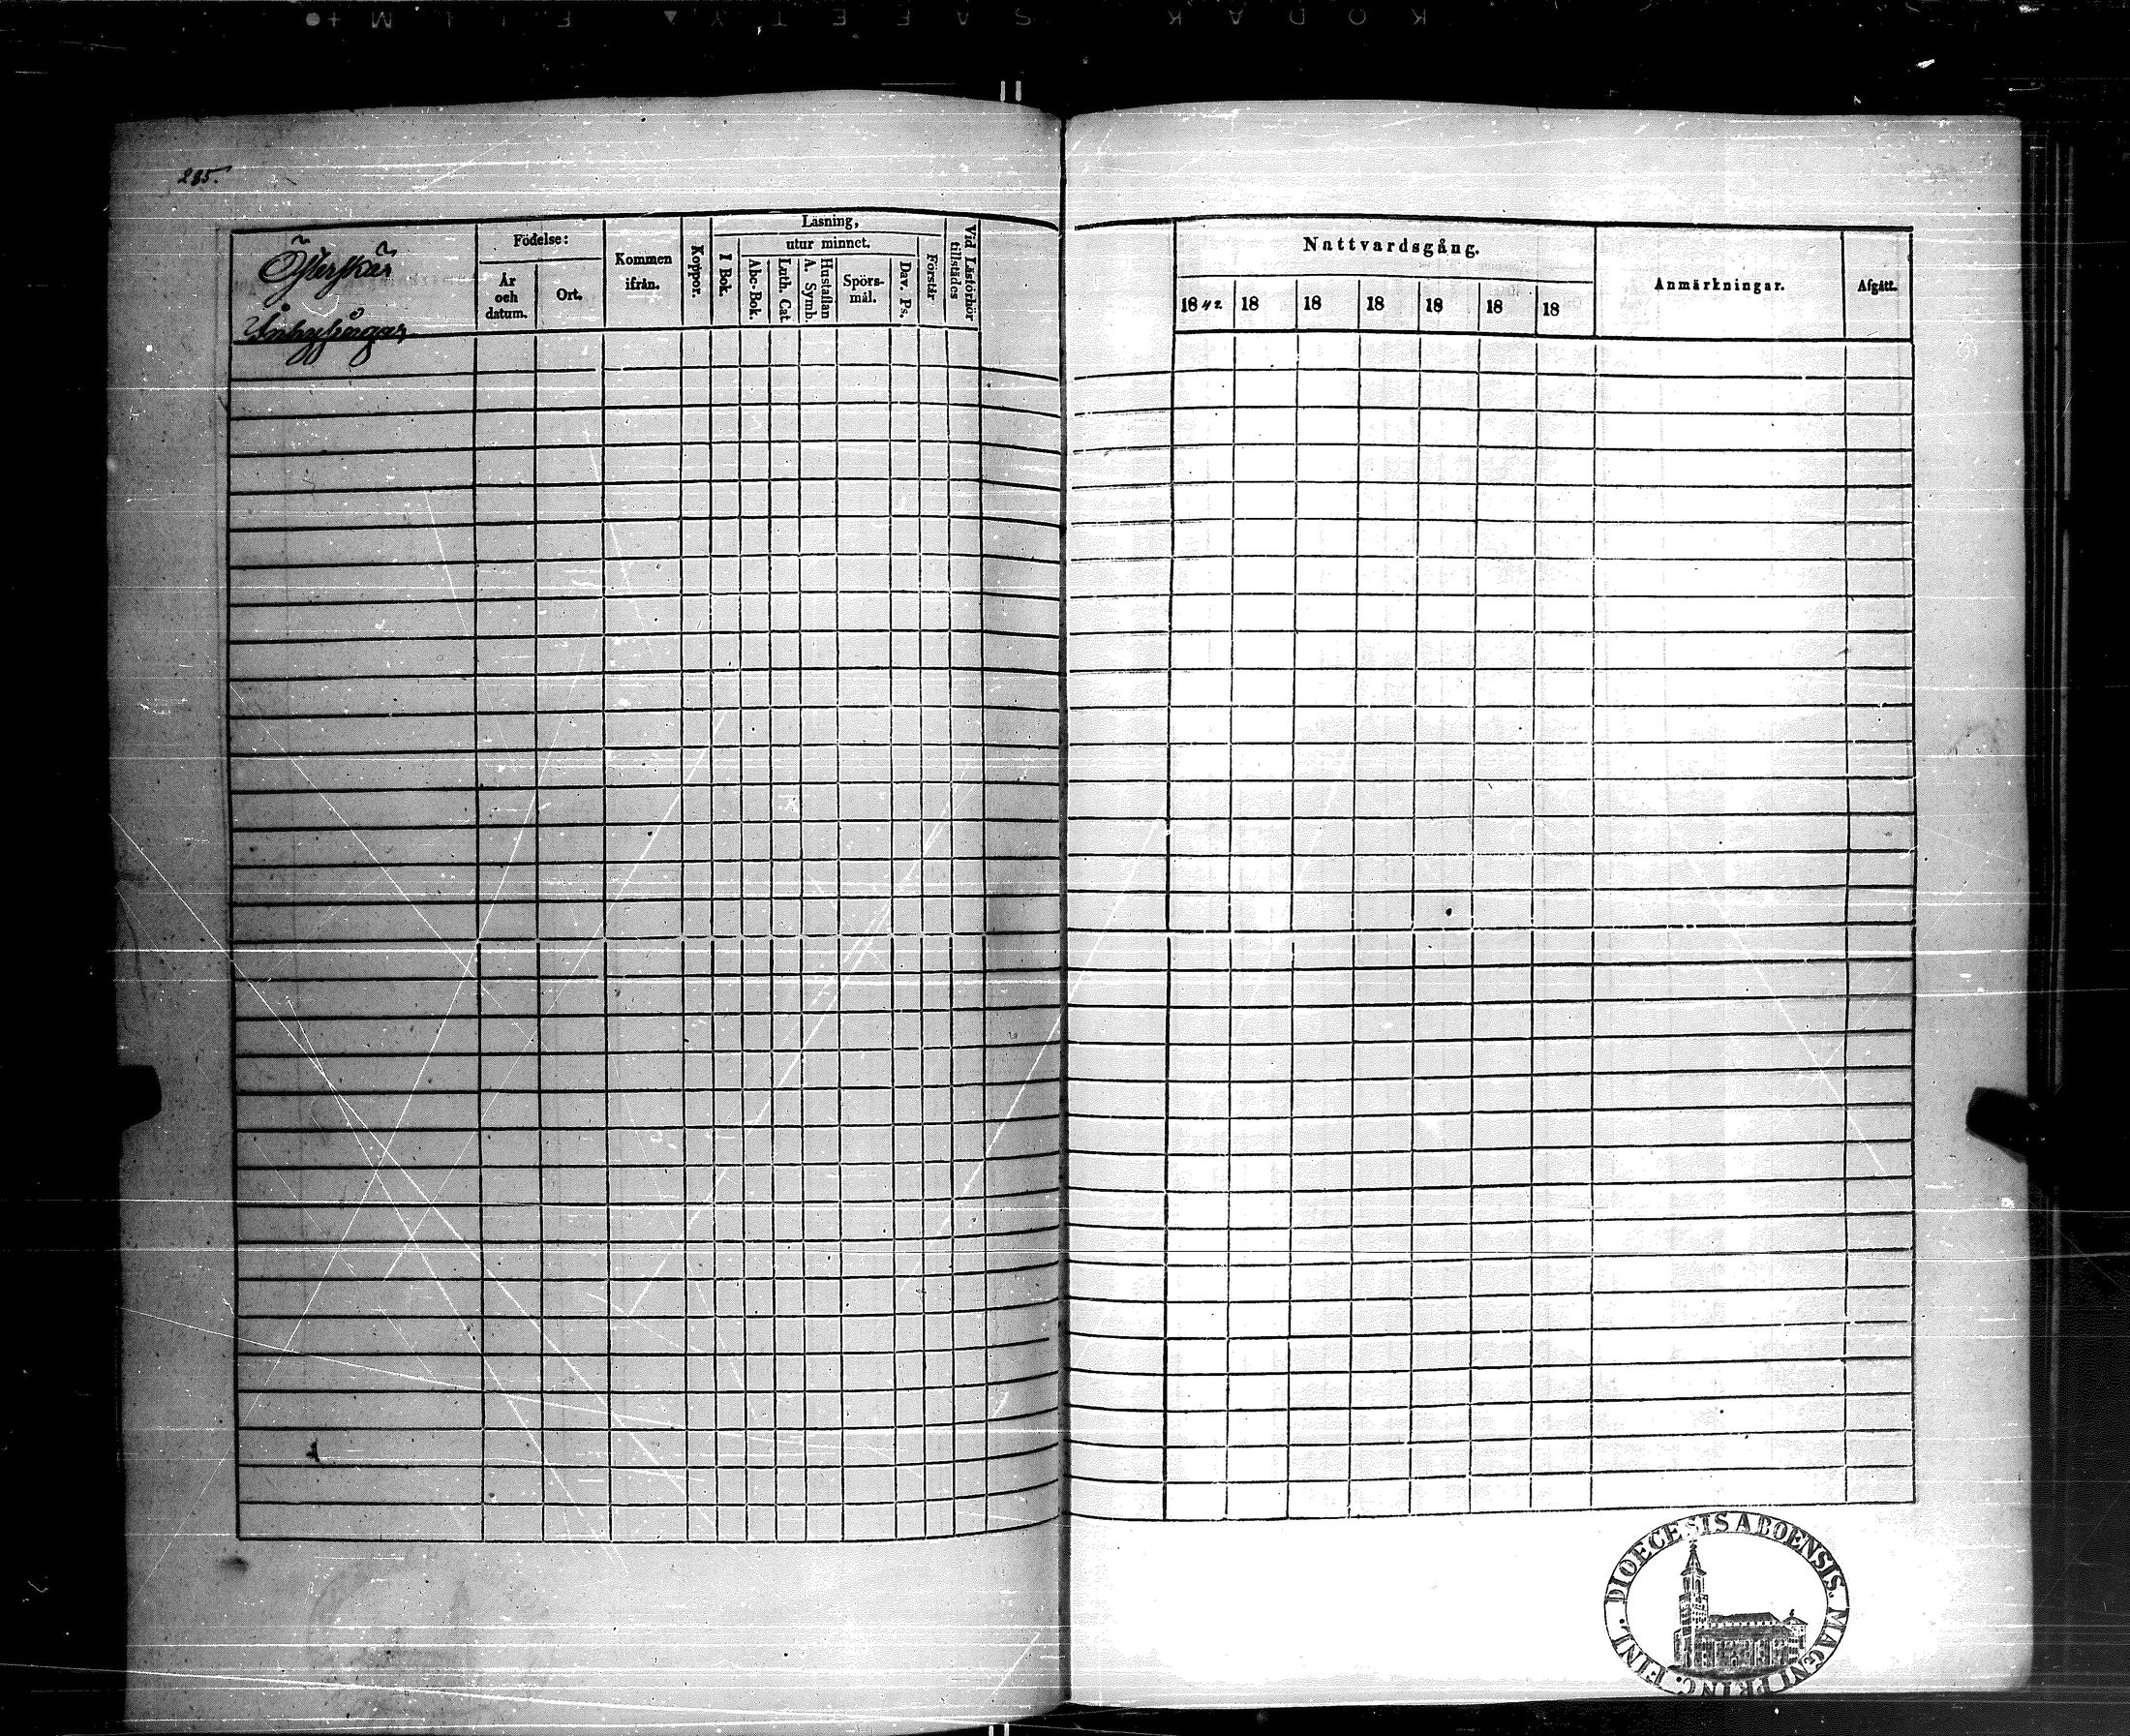 KODAK SAFETY FILM
285.
Österskär
Inhysingar
Födelse:
År
och
datum.
Ort.
Kommen
ifrån.
Koppor.
Läsning,
I Bok.
utur minnet.
Abc-Bok.
Luth. Cat
Hustaflan
A. Symb.
Spörs-
mål.
Dav. Ps.
Förstår
Vid Läsförhör
tillstädes
Nattvardsgång.
1842 18 18 18 18 18 18
Anmärkningar.
Afgått.
DIOECESIS ABOENSIS. MAGNI PRINC. FINL.